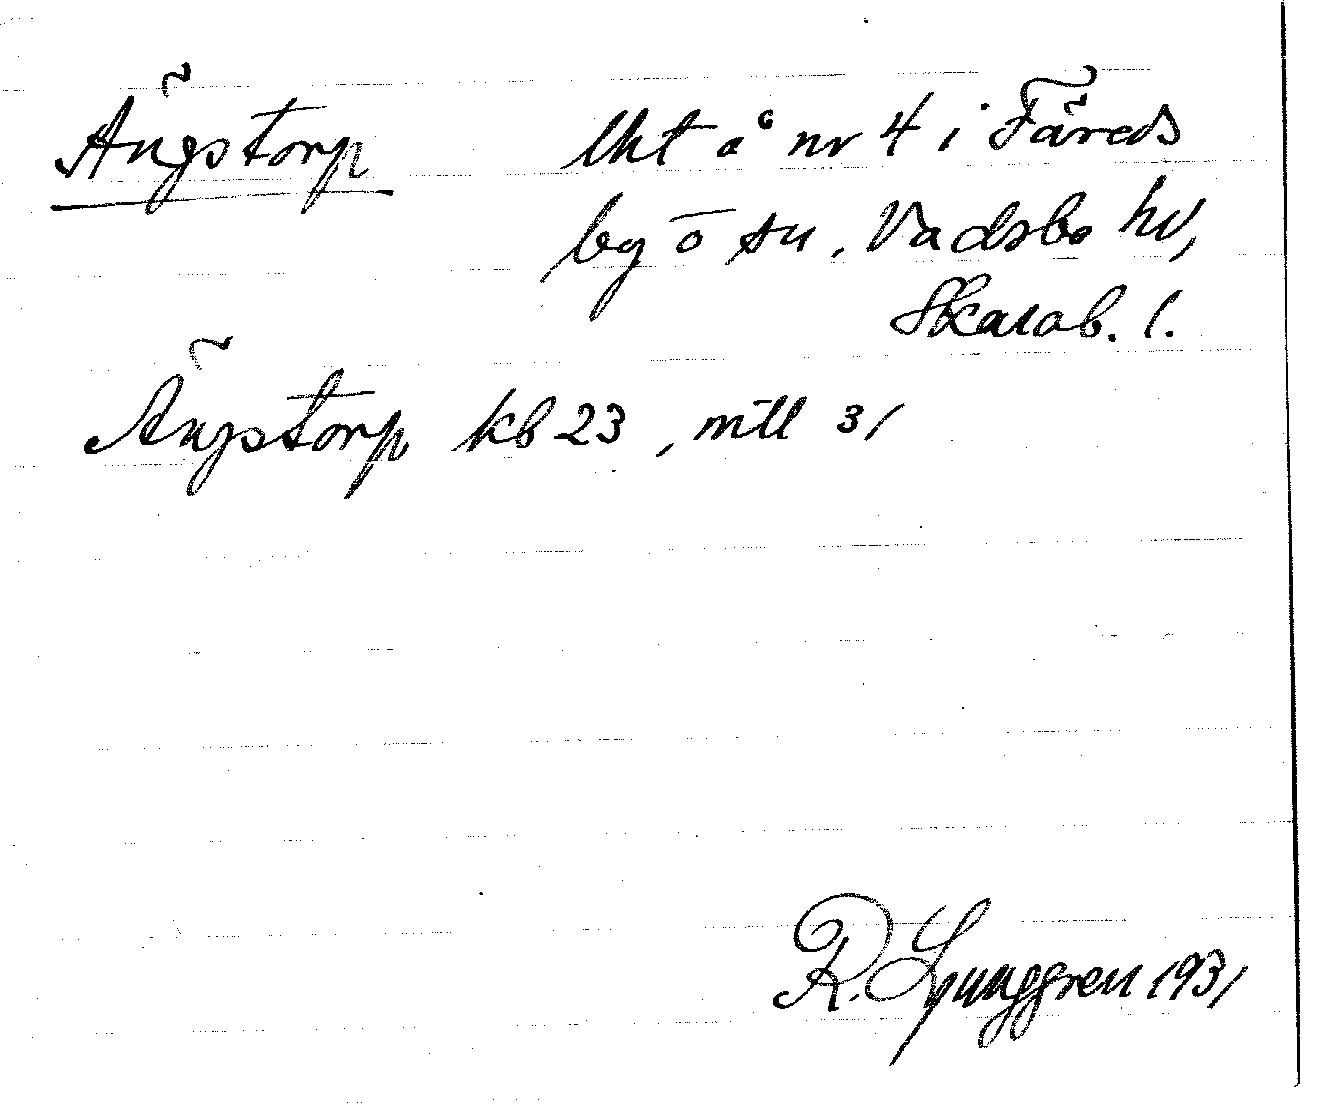 Ängstorp lht å nr 4 i Färeds
by ö sn, Vadsbo hd,
Skarab. l.
Ängstorp kb 23, mtl 31
R. Ljunggren 1931